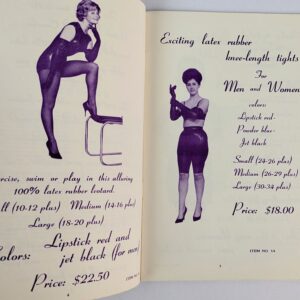 ercise, swim or play in this alluring
100% latex rubber leotard.
ll (10-12 plus) Medium (14-16 plus)
Large (18-20 plus)
Colors: Lipstick red and
jet black (for men)
Price: $22.50
Exciting latex rubber
knee-length tights
For
Men and Women
colors:
Lipstick red-
Powder blue-
Jet black
Small (24-26 plus)
Medium (26-29 plus)
Large (30-34 plus)
Price: $18.00
ITEM NO.